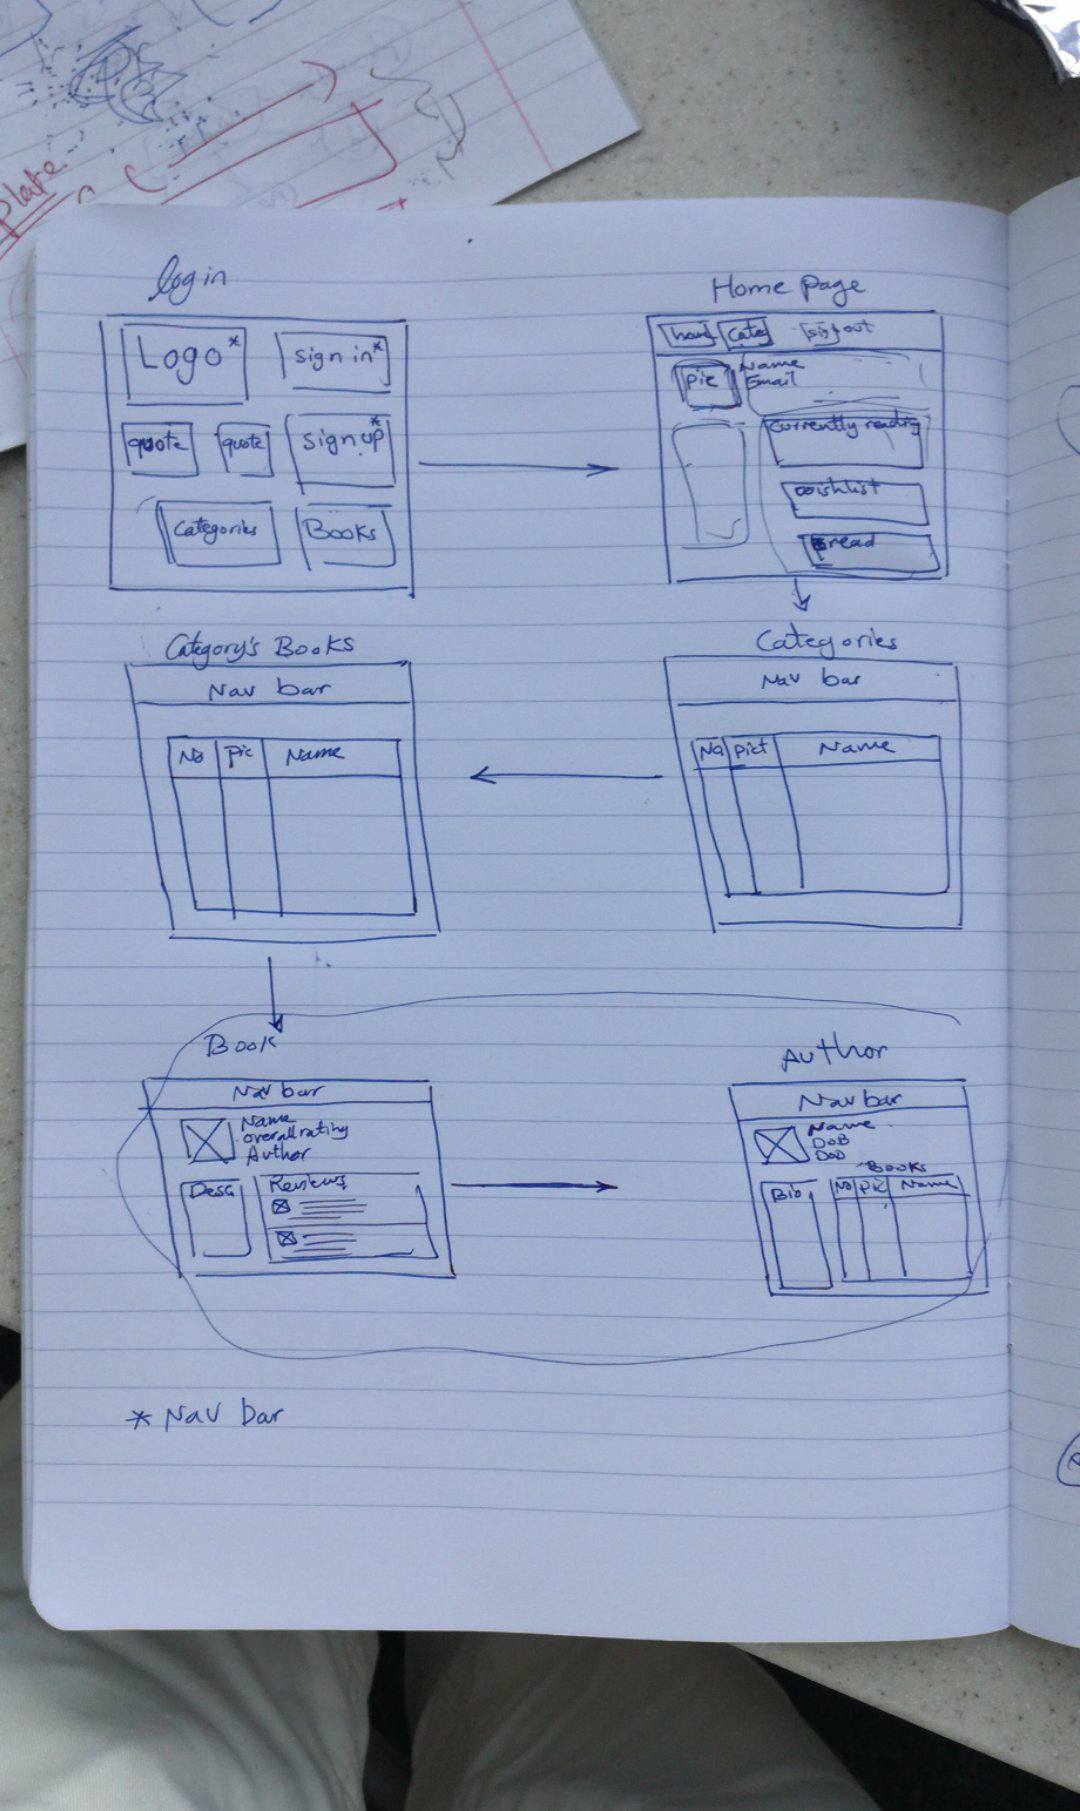 plate
login
Logo*
sign in*
quote
quote
sign up*
Categories
Books
Home Page
Categ
Pic
Name
Email
currently reading
wishlist
read
Category's Books
Nav bar
No Pic Name
Categories
Nav bar
No Pict Name
Book
Nav bar
Name
overall rating
Author
Desc
Reviews
Author
Nav bar
Name
DOB
DOD
Books
Bio
No Pic Name
* Nav bar